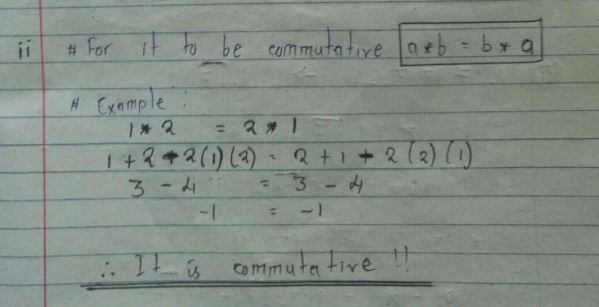 ii # For it to be commutative a*b = b*a
# Example:
1*2 = 2*1
1+2-2(1)(2) = 2+1-2(2)(1)
3-4 = 3-4
-1 = -1
∴ It is commutative!!